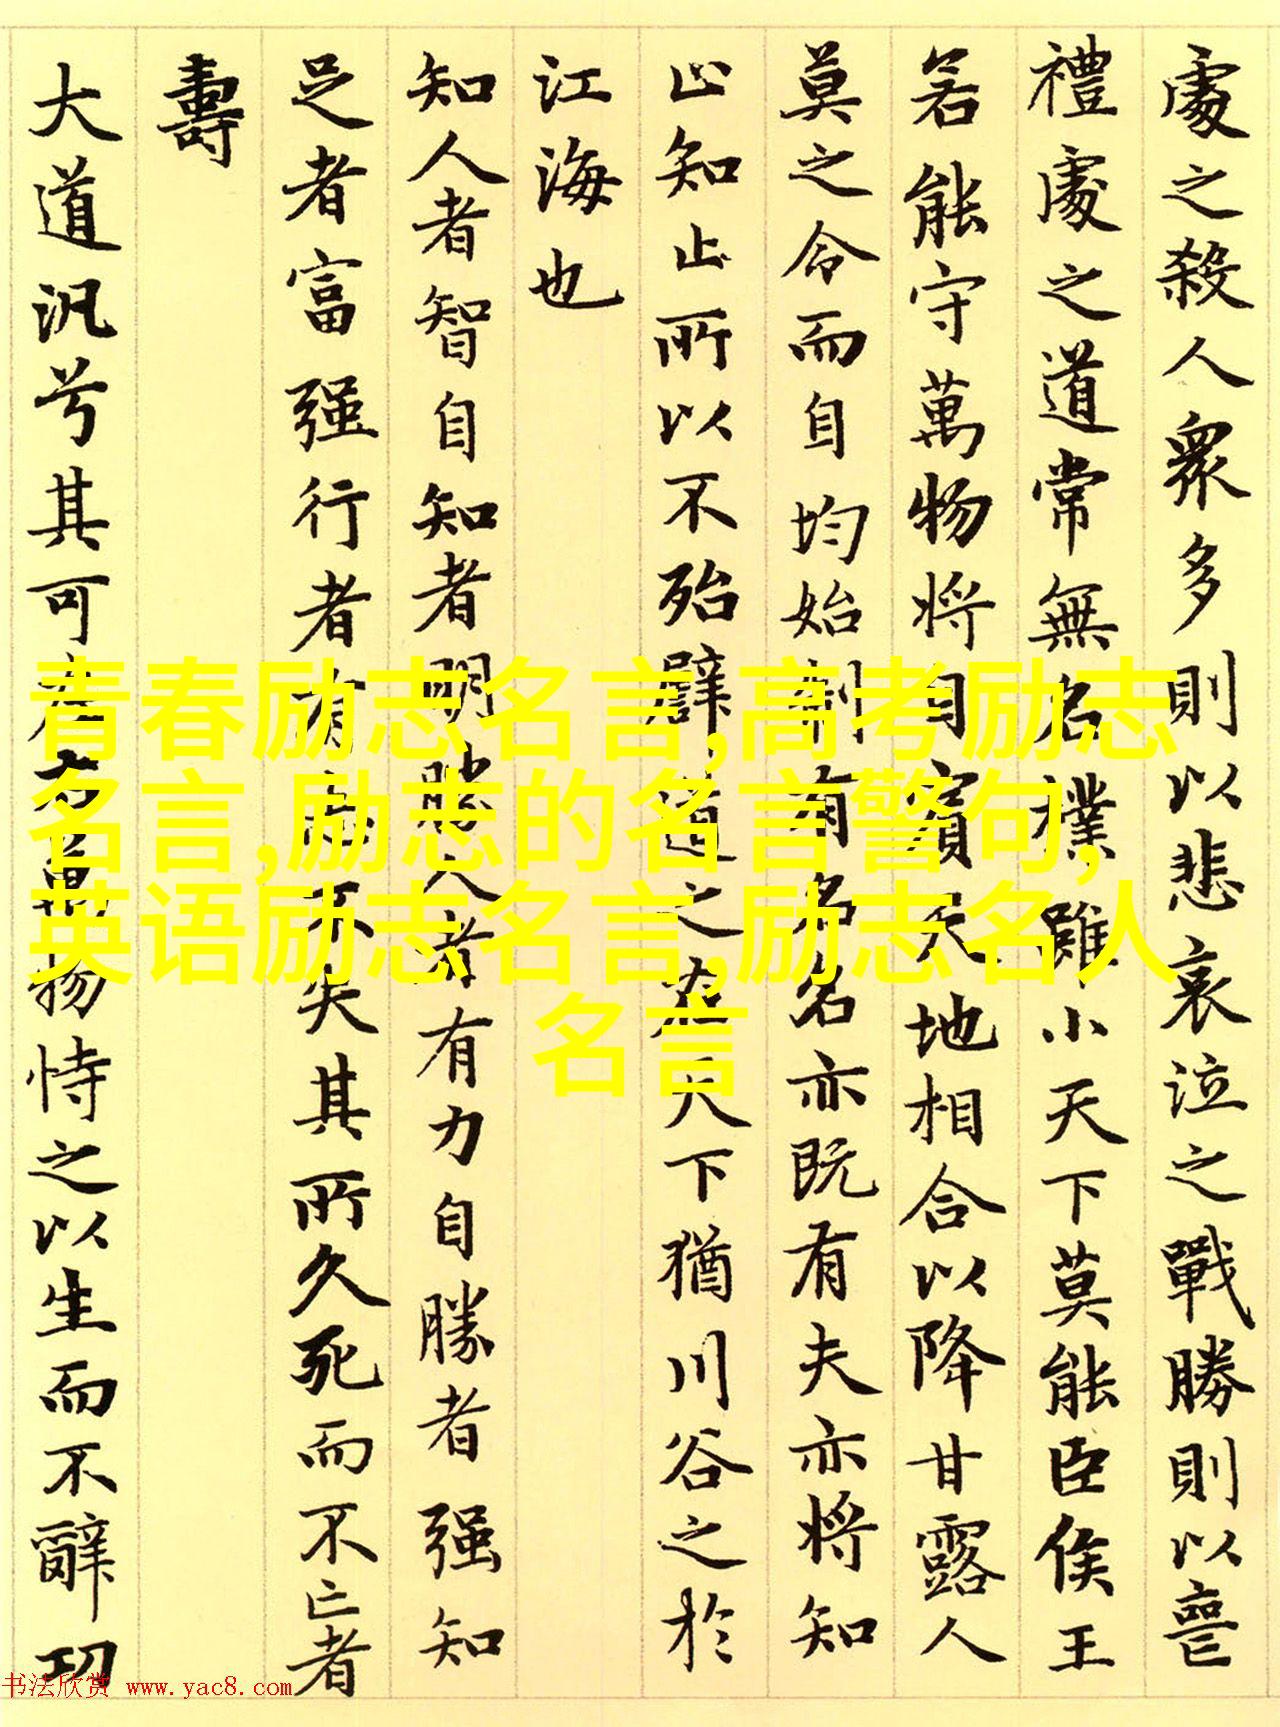 處之殺人衆多則以悲哀泣之戰勝則以喪
禮處之道常無名樸雖小天下莫能臣侯王
若能守萬物將自賓天地相合以降甘露人
莫之令而自均始制有名名亦既有夫亦將知
止知止所以不殆譬道之在天下猶川谷之於
江海也
知人者智自知者明勝人者有力自勝者强知
足者富强行者有志不失其所久死而不亡者
壽
大道汎兮其可左右萬物恃之以生而不辭功
青春励志名言,高考励志
名言,励志的名言警句,
英语励志名言,励志名人
名言
书法欣赏 www.yac8.com